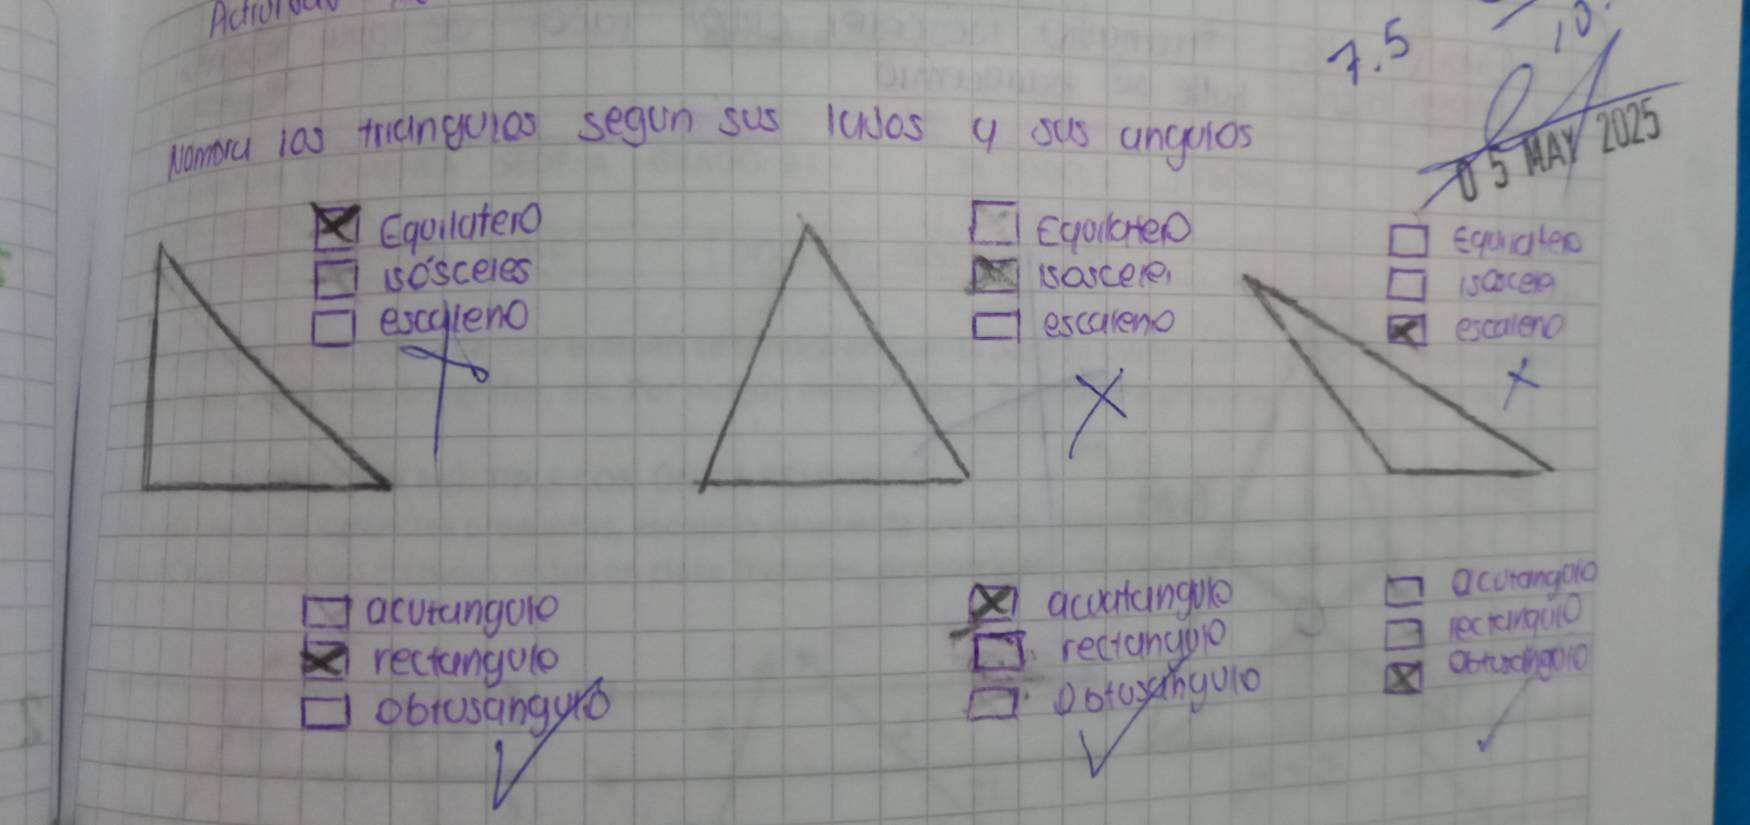 Activ
7.5
10.
Nombra los triangulos segun sus lados y sus angulos
05 MAY 2025
Equilatero
isósceles
escaleno
Equilatero
isoscele
escaleno
Equilatero
isoscele
escaleno
acutangulo
rectangulo
obtusangulo
acutangulo
rectangulo
obtusangulo
acutangulo
rectangulo
obtusangulo